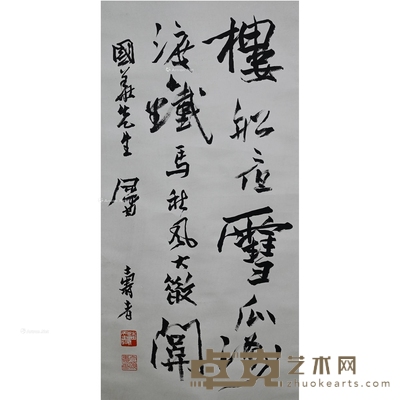 樓船夜雪瓜洲
渡鐵馬秋風大散關
國華先生
卓克艺术网
zhuokearts.com